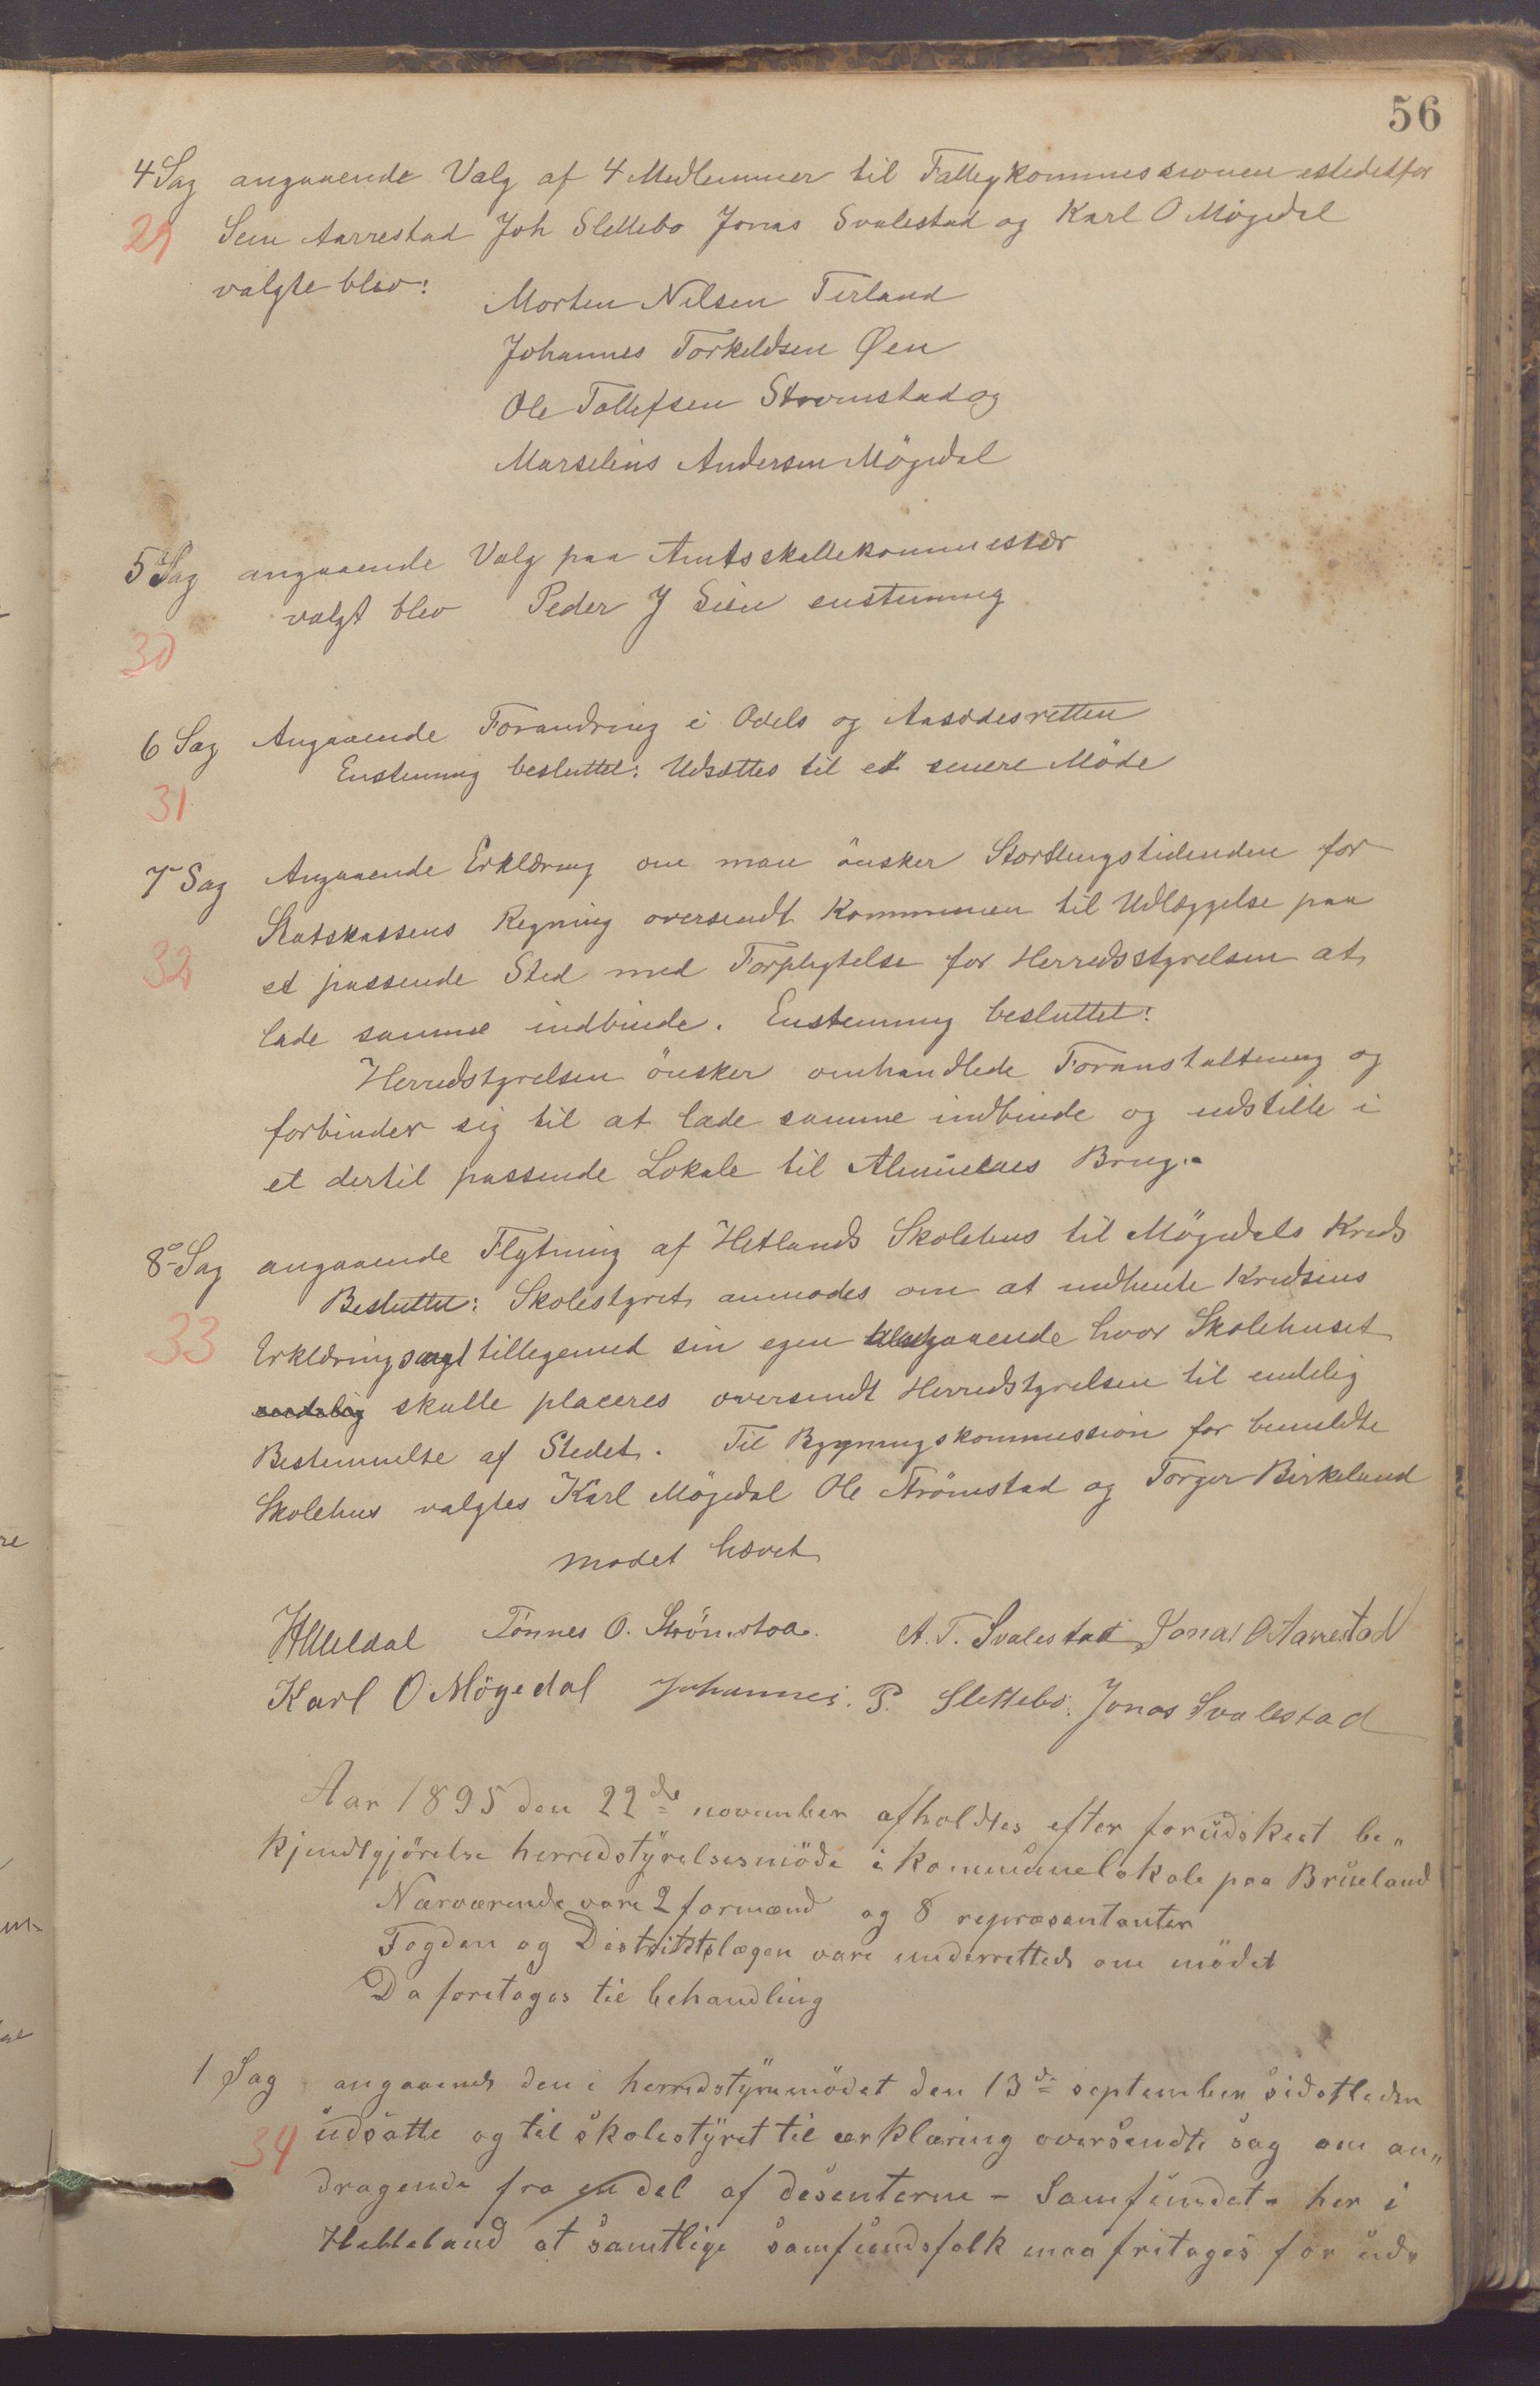 56
4 Sag angaaende Valg af 4 Medlemmer til Fattigkommissionen istedetfor
29 Sem Aarrestad Joh Slettebo Jonas Svalestad og Karl O Mögedal
valgte blev:
Morten Nilsen Terland
Johannes Torkeldsen Øen
Ole Tollefsen Strömstad og
Marselius Andersen Mögedal
5 Sag angaaende Valg paa Amtsskattekommissær
valgt blev Peder J Sien enstemmig
30
6 Sag Angaaende Forandring i Odels og Aasædesretten
Enstemmig besluttet: Udsættes til et senere Möde
31
7 Sag Angaaende Erklæring om man önsker Storthingstidenden for
Statskassens Regning oversendt Kommunen til Udlæggelse paa
32 et passende Sted med Forpligtelse for Herredsstyrelsen at
lade samme indbinde. Enstemmig besluttet:
Herredstyrelsen önsker omhandlede Foranstaltning og
forbinder sig til at lade samme indbinde og udstille i
et dertil passende Lokale til Almenhedens Brug.
8 Sag angaaende Flytning af Hetlands Skolehus til Mögedals Kreds
Besluttet: Skolestyret anmodes om at indhente Kredsens
33 Erklæring tilligemed sin egen angaaende hvor Skolehuset
skulle placeres oversendt Herredstyrelsen til endelig
Bestemmelse af Stedet. Til Bygningskommission for bemeldte
Skolehus valgtes Karl Mögedal Ole Strömstad og Torger Birkeland
Mödet hævet
Tönnes O. Strömstad. A. T. Svalestad Jonas O Aarrestad
Karl O Mögedal Johannes. P. Slettebö. Jonas Svalestad
Aar 1895 den 22de november afholdtes efter forudskeet be„
kjendtgjörelse herredstyrelsesmöde i kommunelokale paa Brueland
Nærværende vare 2 formænd og 8 repræsentanter
Fogden og Distriktslægen vare underrettede om mödet
Da foretoges til behandling
1 Sag angaaende den i herredstyremödet den 13de september sidstleden
34 udsatte og til skolestyret til erklæring oversendte sag om an„
dragende fra en del af desenterne - Samfundet - her i
Helleland at samtlige samfundsfolk maa fritages for ud„